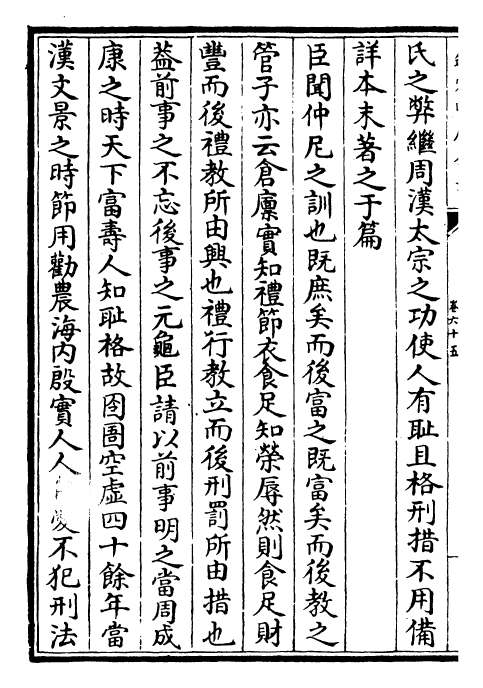 氏之弊繼周漢太宗之功使人有耻且格刑措不用備
詳本末著之于篇
臣聞仲尼之訓也既庶矣而後富之既富矣而後教之
管子亦云倉廩實知禮節衣食足知榮辱然則食足財
豐而後禮教所由興也禮行教立而後刑罰所由措也
葢前事之不忘後事之元龜臣請以前事明之當周成
康之時天下富壽人知耻格故囹圄空虛四十餘年當
漢文景之時節用勸農海内殷實人人愛不犯刑法
卷六十五